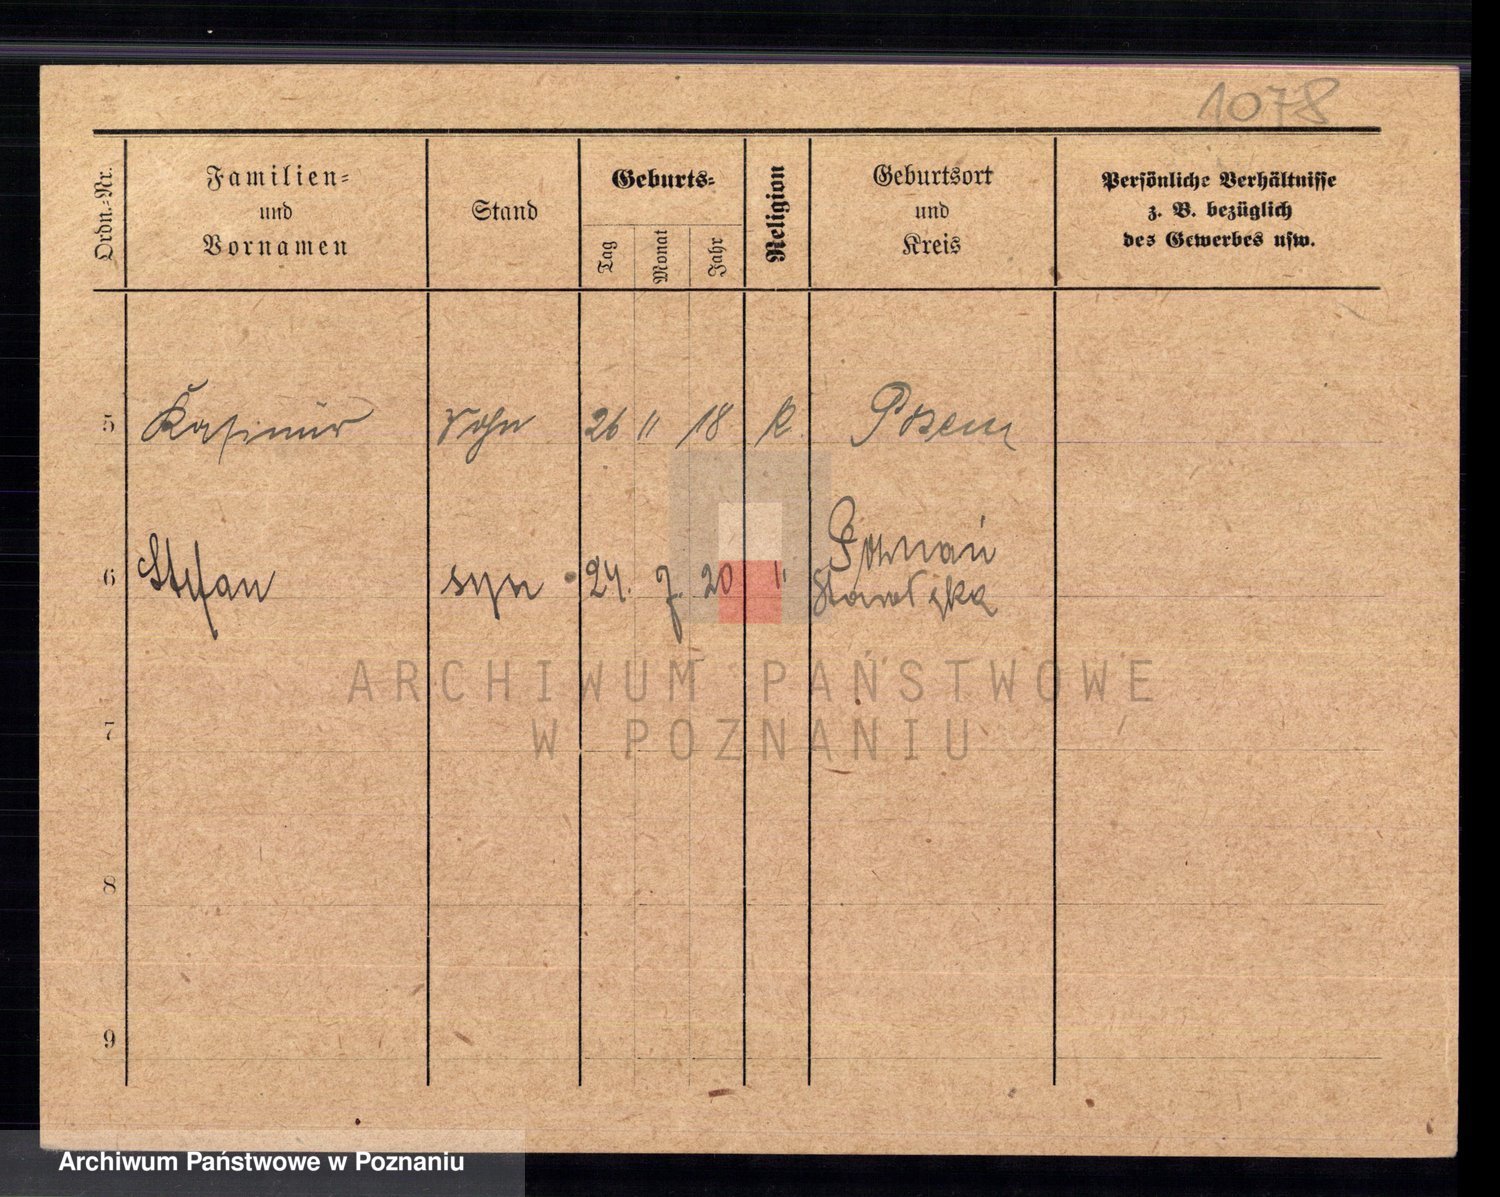 1078
Ordn.-Nr.
Familien-
und
Vornamen
Stand
Geburts-
Tag
Monat
Jahr
Religion
Geburtsort
und
Kreis
Persönliche Verhältnisse
z. B. bezüglich
des Gewerbes usw.
5 Kasimir Sohn 26 11 18 K. Posen
6 Stefan syn 24. 7. 20 " Poznań
7
8
9
ARCHIWUM PAŃSTWOWE
W POZNANIU
Archiwum Państwowe w Poznaniu